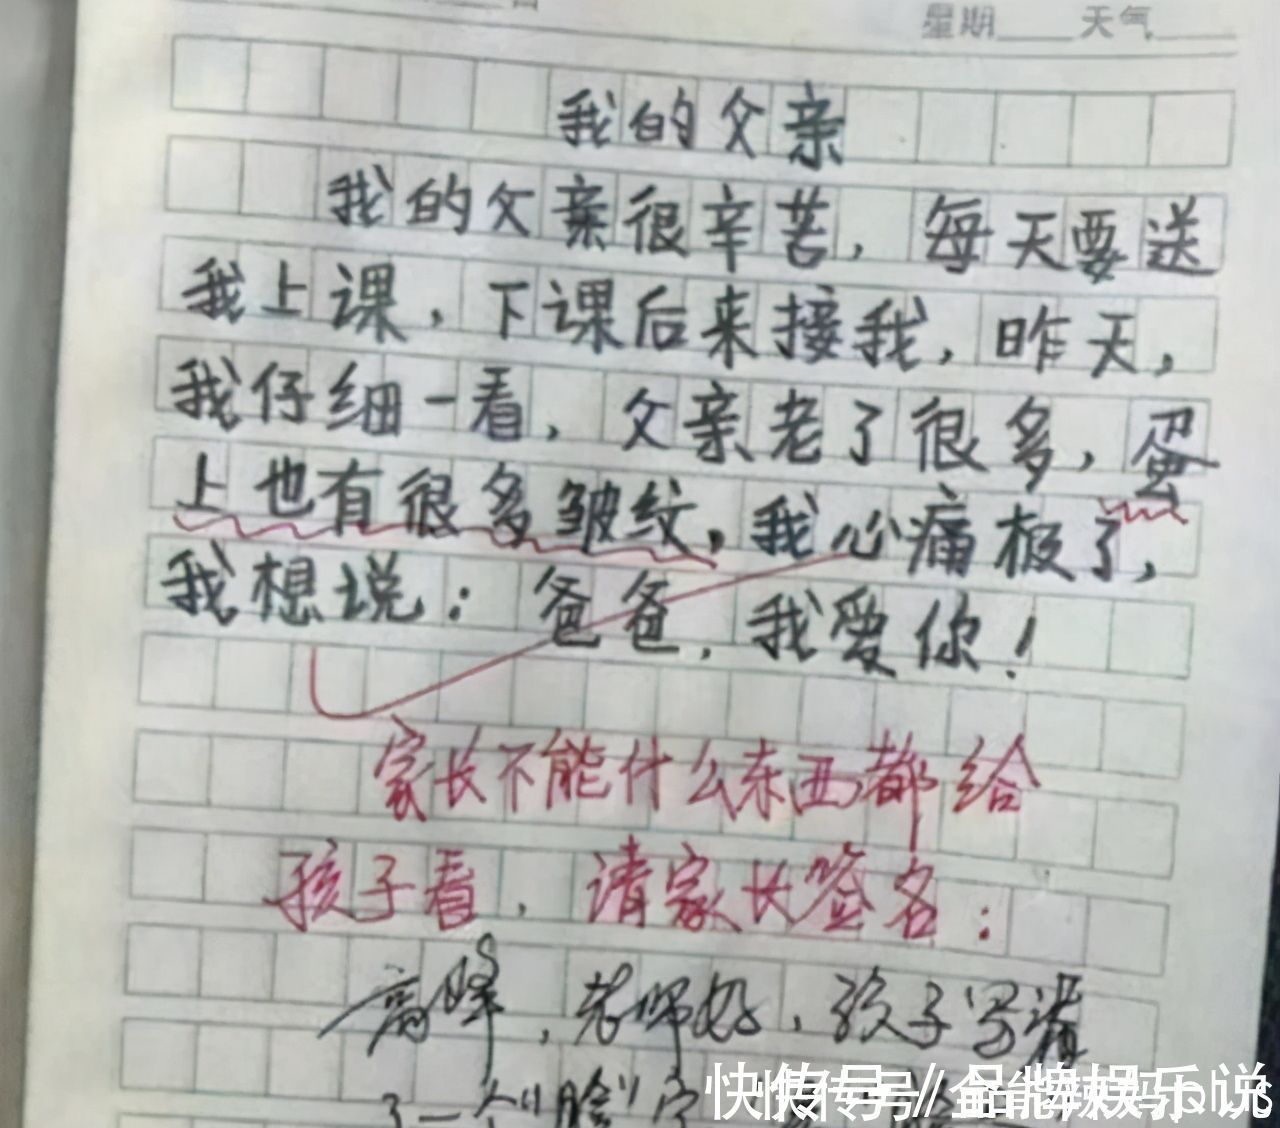 星期 天气
我的父亲
我的父亲很辛苦，每天要送
我上课，下课后来接我，昨天，
我仔细一看，父亲老了很多，蛋
上也有很多皱纹，我心痛极了，
我想说：爸爸，我爱你！
家长不能什么东西都给
孩子看，请家长签名：
高峰，老师好，孩子写错
了一个"脸"字
快传号//